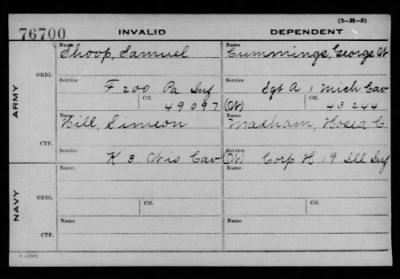 (2-H-5)
76700 INVALID DEPENDENT
Name Name
Shoop, Samuel Cummings, George W
ORIG.
Service Service
F 200 Pa Inf Sgt A 1 Mich Cav
Ctf. Ctf.
49097 (W) 43244
ARMY
Name Name
Hill, Simeon Hosea C.
CTF.
Service Service
K 3 Wis Cav (W) Corp H 19 Ill Inf
Name Ctf. Name Ctf.
ORIG.
Service Service
NAVY
Name Name
CTF.